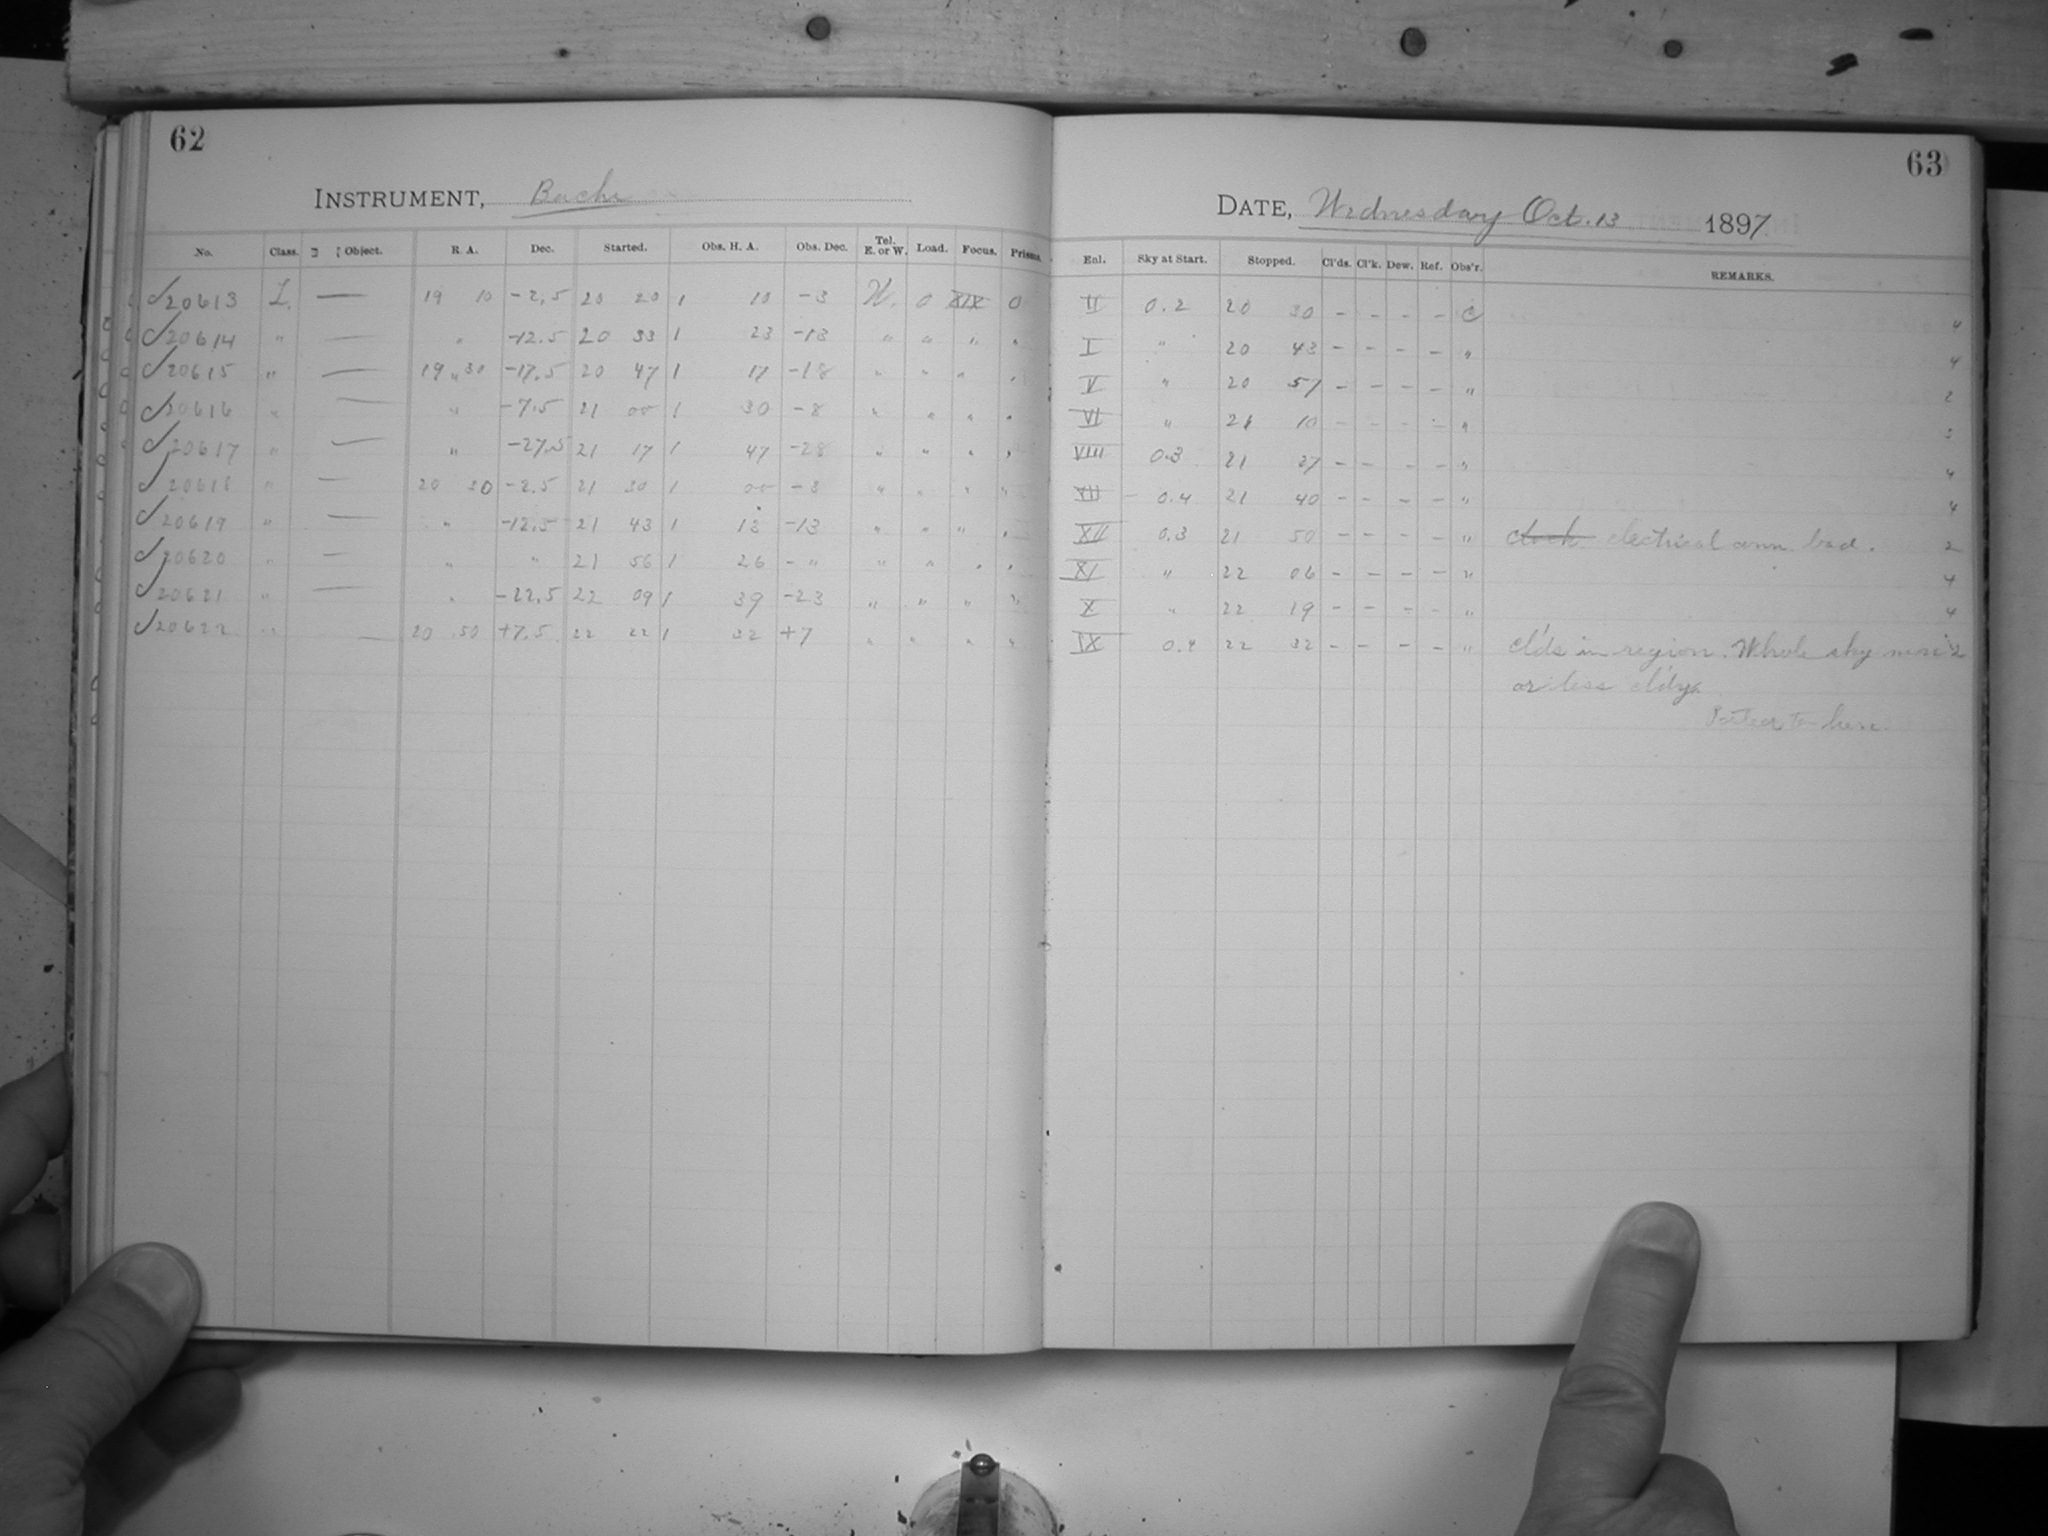 62
INSTRUMENT, Bache
No. Class. Object. R. A. Dec. Started. Obs. H. A. Obs. Dec. Tel. E. or W. Load. Focus. Prisms.
√20613 L. — 19 10 -2.5 20 20 1 10 -3 W. 0 XIX 0
√20614 " — " -12.5 20 33 1 23 -13 " " " "
√20615 " — 19 30 -17.5 20 47 1 17 -18 " " " "
√20616 " — " -7.5 21 00 1 30 -8 " " " "
√20617 " — " -27.5 21 17 1 47 -28 " " " "
√20618 " — 20 30 -2.5 21 30 1 00 -3 " " " "
√20619 " — " -12.5 21 43 1 13 -13 " " " "
√20620 " — " " 21 56 1 26 - " " " " "
√20621 " — " -22.5 22 09 1 39 -23 " " " "
√20622 " — 20 50 +7.5 22 22 1 32 +7 " " " "
63
DATE, Wednesday Oct. 13 1897
Enl. Sky at Start. Stopped. Cl'ds. Cl'k. Dew. Ref. Obs'r. REMARKS.
II 0.2 20 30 - - - - C 4
I " 20 43 - - - - " 4
V " 20 57 - - - - " 2
VI " 21 10 - - - - " 3
VIII 0.3 21 27 - - - - " 4
VII 0.4 21 40 - - - - " 4
XII 0.3 21 50 - - - - " clock electrical conn. bad. 2
XI " 22 06 - - - - " 4
X " 22 19 - - - - " 4
IX 0.4 22 32 - - - - " cl'ds in region. Whole sky more 2
or less cl'dy.
to here.